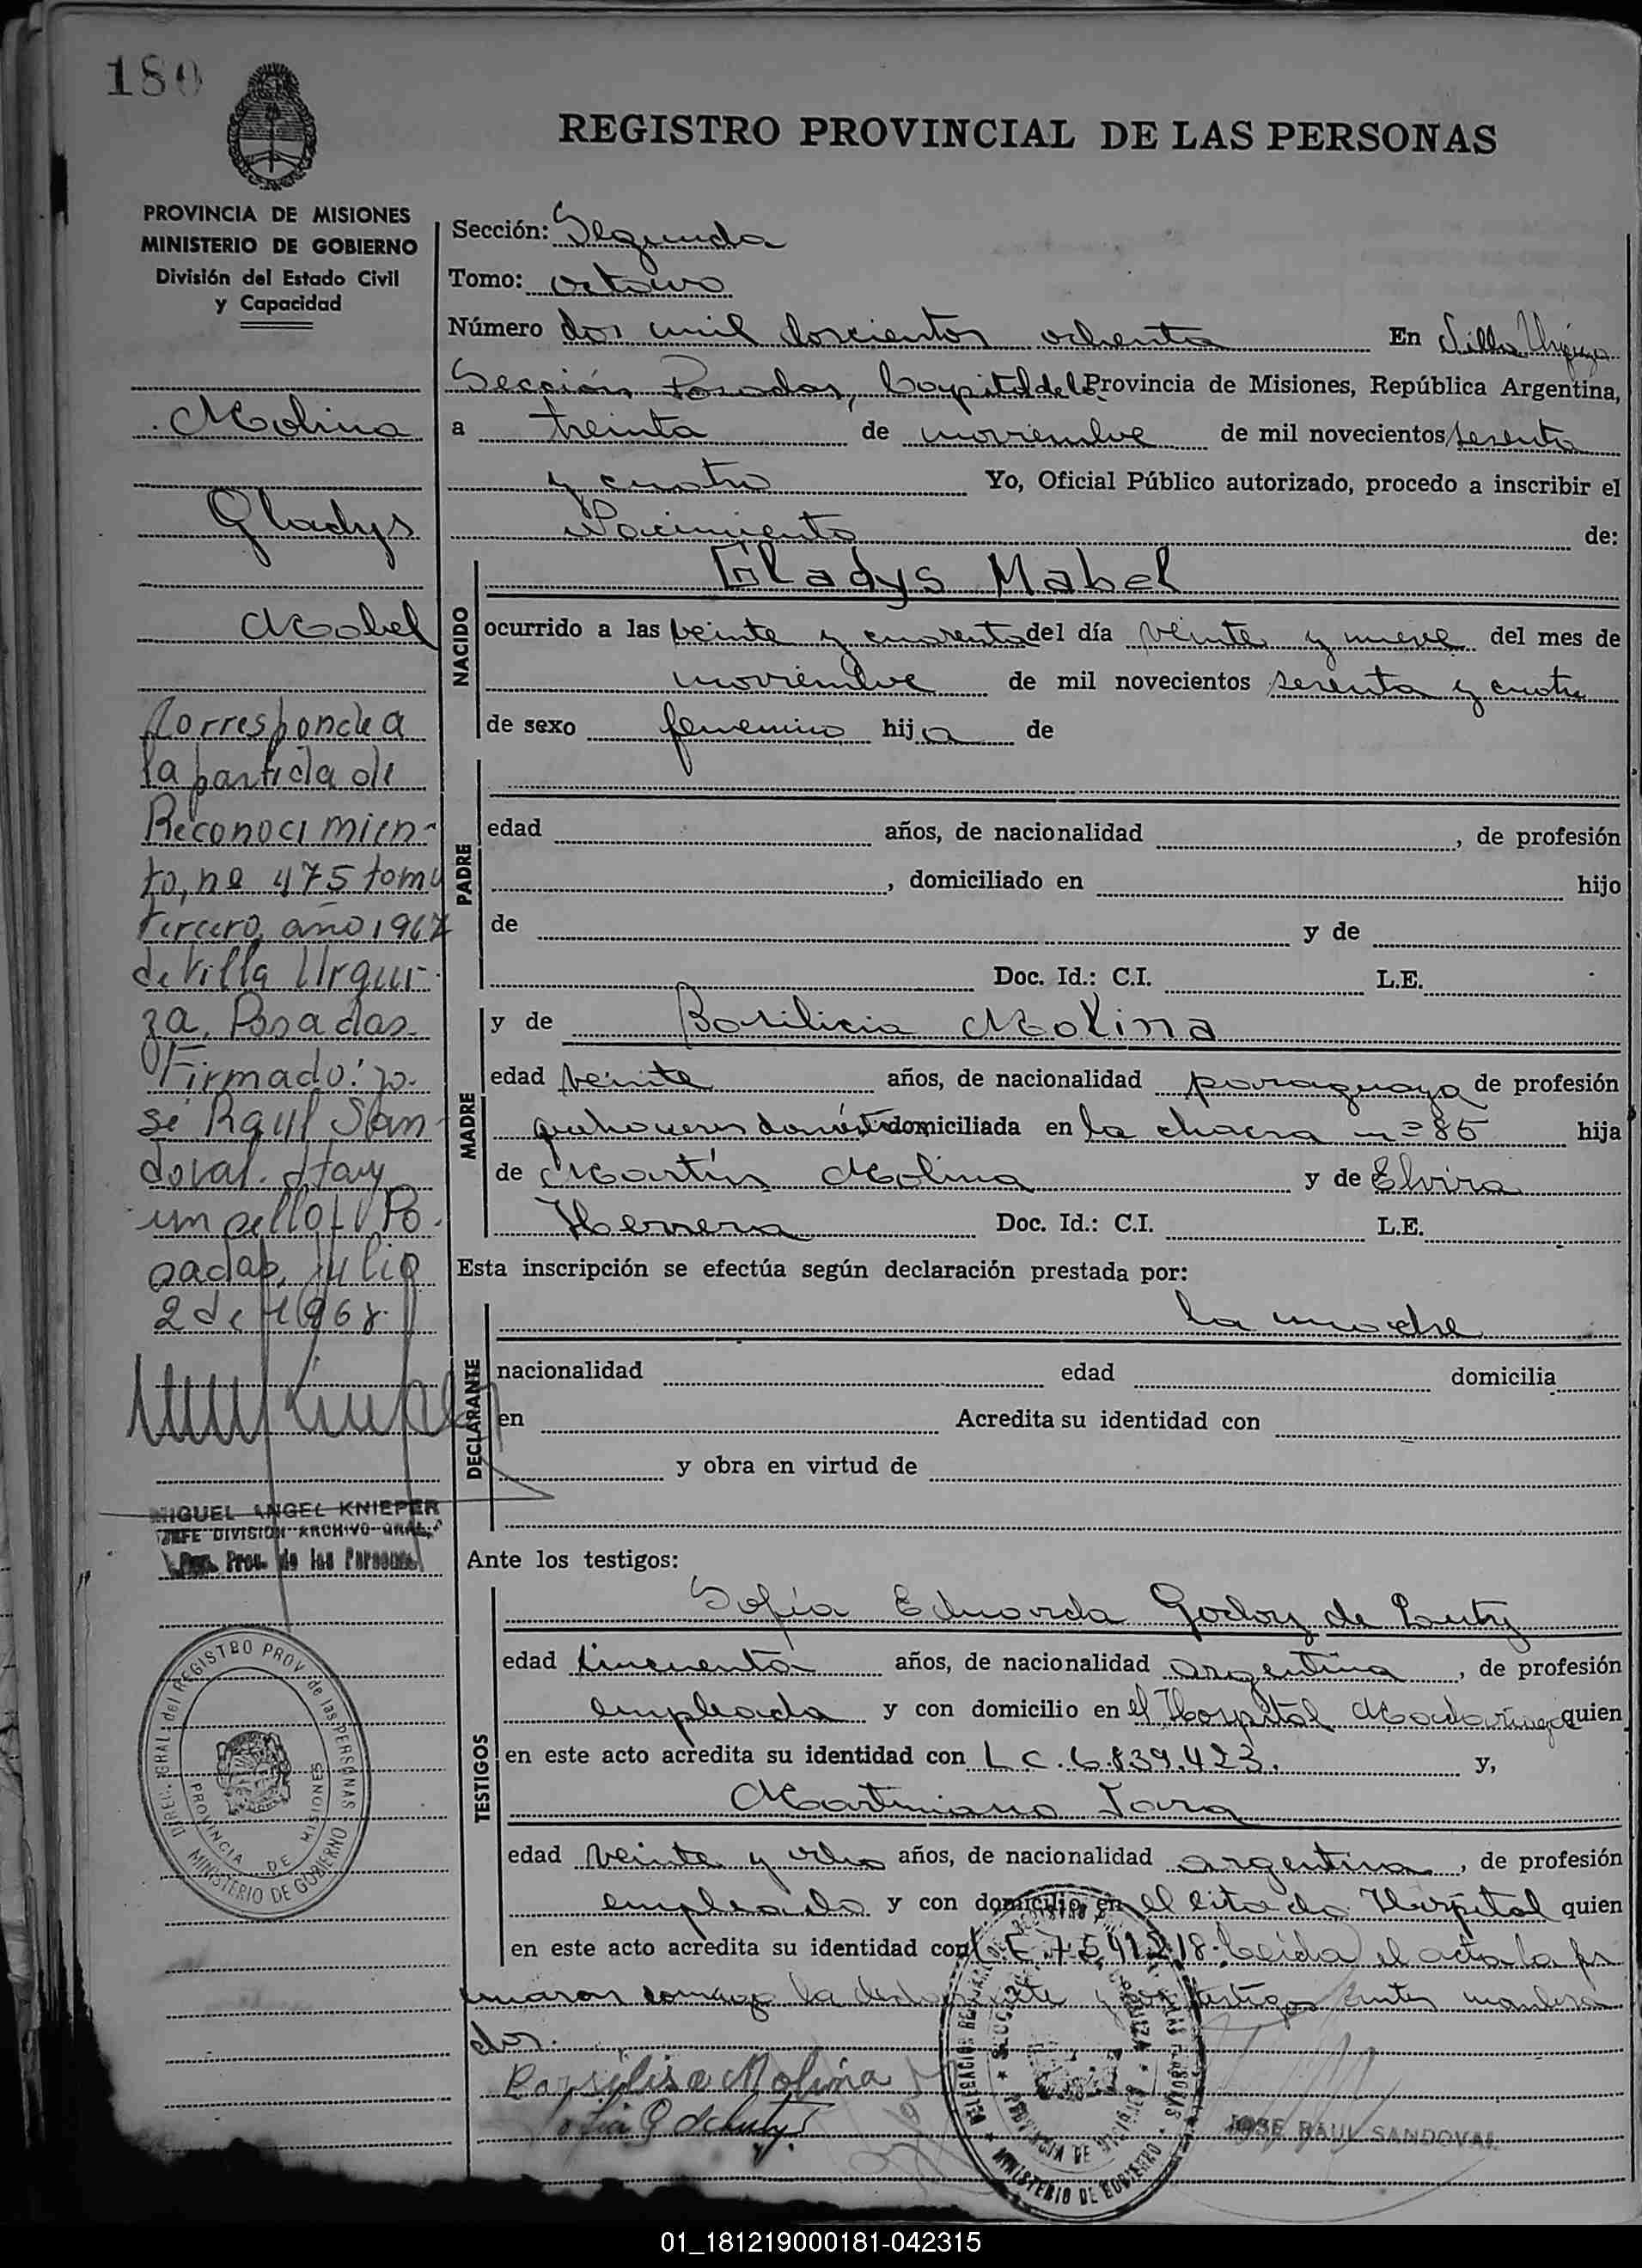 180
REGISTRO PROVINCIAL DE LAS PERSONAS
PROVINCIA DE MISIONES
MINISTERIO DE GOBIERNO
División del Estado Civil
y Capacidad
Molina
Gladys
Mabel
Corresponde a
la partida de
Reconocimien-
to, nº 475 tomo
tercero, año 1967
de Villa Urqui-
za, Posadas.
Firmado: Jo-
sé Raul San-
doval. Hay
un sello. Po-
sadas, Julio
2 de 1968.
MIGUEL ANGEL KNIEPER
JEFE DIVISION ARCHIVO GRAL.
Reg. Prov. de las Personas
DIREC. GRAL. del REGISTRO PROV. de las PERSONAS
PROVINCIA DE MISIONES
MINISTERIO DE GOBIERNO
Sección: Segunda
Tomo: octavo
Número dos mil doscientos ochenta En Villa Urquiza
Sección Posadas, Capital de la Provincia de Misiones, República Argentina,
a treinta de noviembre de mil novecientos sesenta
y cuatro Yo, Oficial Público autorizado, procedo a inscribir el
Nacimiento de:
NACIDO
Gladys Mabel
ocurrido a las veinte y cuarenta del día veinte y nueve del mes de
noviembre de mil novecientos sesenta y cuatro
de sexo femenino hija de
PADRE
edad años, de nacionalidad , de profesión
, domiciliado en hijo
de y de
Doc. Id.: C.I. L.E.
MADRE
y de Basilicia Molina
edad veinte años, de nacionalidad paraguaya de profesión
quehaceres domésticos domiciliada en la chacra nº 85 hija
de Martín Molina y de Elvira
Herrera Doc. Id.: C.I. L.E.
Esta inscripción se efectúa según declaración prestada por:
DECLARANTE
la madre
nacionalidad edad domicilia
en Acredita su identidad con
y obra en virtud de
Ante los testigos:
TESTIGOS
Sofía Eduarda Godoy de
edad cincuenta años, de nacionalidad argentina, de profesión
empleada y con domicilio en el Hospital Madariaga quien
en este acto acredita su identidad con L C. 6.839.423. y,
Martiniano Jara
edad veinte y ocho años, de nacionalidad argentina, de profesión
empleado y con domicilio en el citado Hospital quien
en este acto acredita su identidad con 7.541.218. Leída el acta la fir
maron conmigo la declarante y los testigos antes nombra
dos.
Basilisa Molina
Sofia G de
JOSE RAUL SANDOVAL
MINISTERIO DE GOBIERNO
01_181219000181-042315